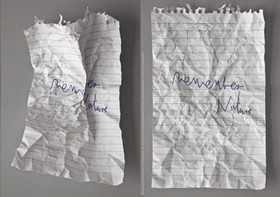 remember
Nature
remember
Nature